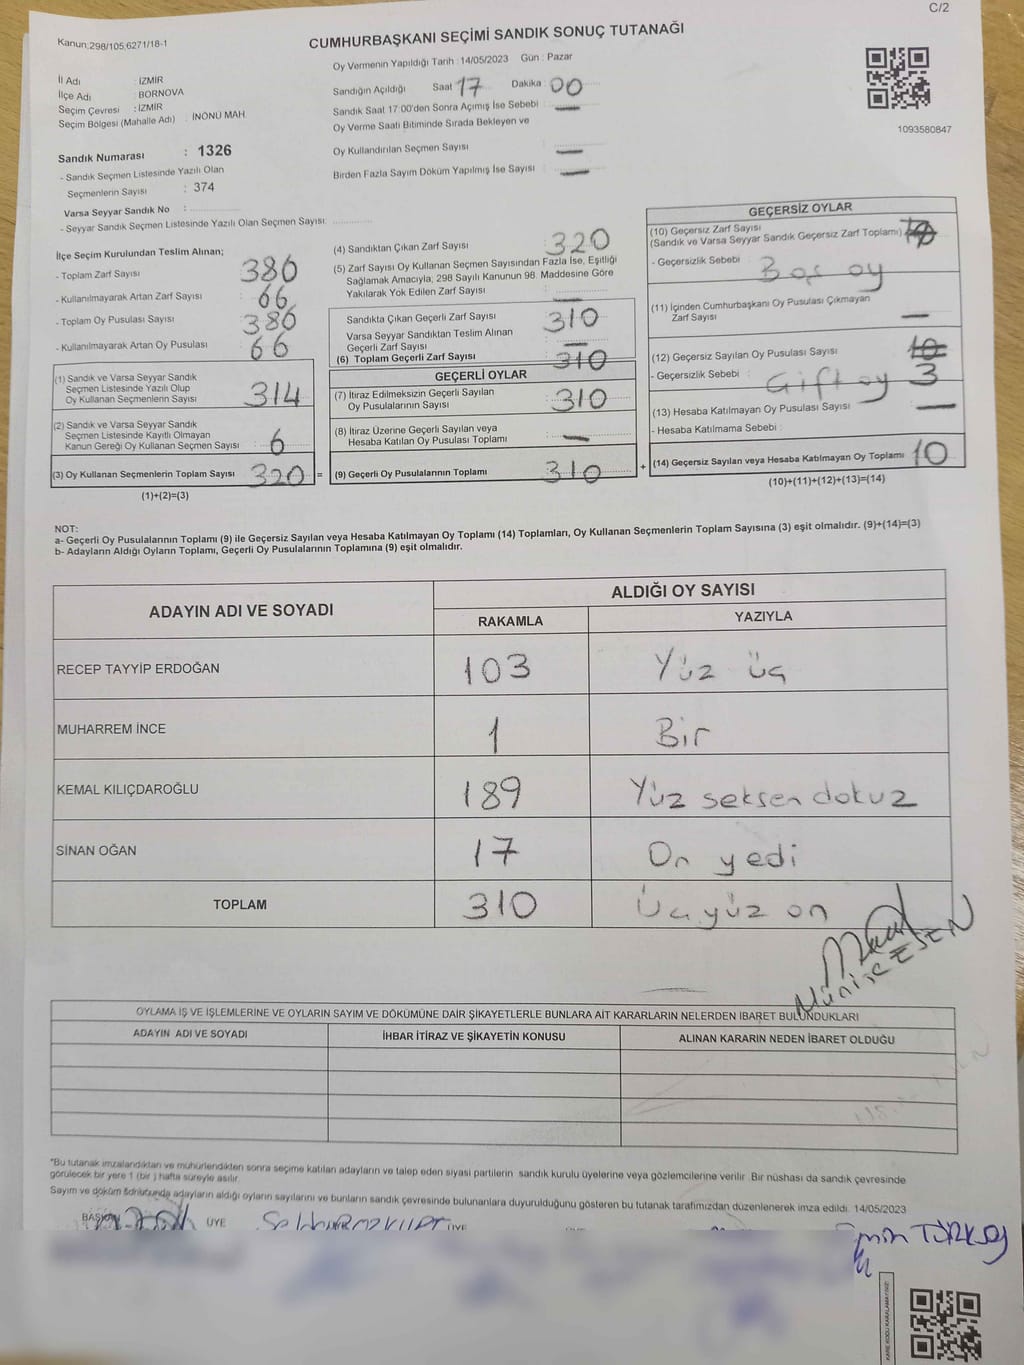 C/2
Kanun;298/105,6271/18-1
CUMHURBAŞKANI SEÇİMİ SANDIK SONUÇ TUTANAĞI
İl Adı : İZMİR
İlçe Adı : BORNOVA
Seçim Çevresi : İZMİR
Seçim Bölgesi (Mahalle Adı) : İNÖNÜ MAH
Oy Vermenin Yapıldığı Tarih : 14/05/2023 Gün : Pazar
Sandığın Açıldığı Saat 17 Dakika : 00
Sandık Saat 17:00'den Sonra Açılmış İse Sebebi : —
Oy Verme Saati Bitiminde Sırada Bekleyen ve
Oy Kullandırılan Seçmen Sayısı : —
Birden Fazla Sayım Döküm Yapılmış İse Sayısı : —
1093580847
Sandık Numarası : 1326
- Sandık Seçmen Listesinde Yazılı Olan
Seçmenlerin Sayısı : 374
Varsa Seyyar Sandık No :
- Seyyar Sandık Seçmen Listesinde Yazılı Olan Seçmen Sayısı:
İlçe Seçim Kurulundan Teslim Alınan;
- Toplam Zarf Sayısı : 386
- Kullanılmayarak Artan Zarf Sayısı : 66
- Toplam Oy Pusulası Sayısı : 386
- Kullanılmayarak Artan Oy Pusulası : 66
(1) Sandık ve Varsa Seyyar Sandık
Seçmen Listesinde Yazılı Olup
Oy Kullanan Seçmenlerin Sayısı : 314
(2) Sandık ve Varsa Seyyar Sandık
Seçmen Listesinde Kayıtlı Olmayan
Kanun Gereği Oy Kullanan Seçmen Sayısı : 6
(3) Oy Kullanan Seçmenlerin Toplam Sayısı : 320 =
(1)+(2)=(3)
(4) Sandıktan Çıkan Zarf Sayısı : 320
(5) Zarf Sayısı Oy Kullanan Seçmen Sayısından Fazla İse, Eşitliği
Sağlamak Amacıyla; 298 Sayılı Kanunun 98. Maddesine Göre
Yakılarak Yok Edilen Zarf Sayısı : —
Sandıkta Çıkan Geçerli Zarf Sayısı : 310
Varsa Seyyar Sandıktan Teslim Alınan
Geçerli Zarf Sayısı : —
(6) Toplam Geçerli Zarf Sayısı : 310
GEÇERLİ OYLAR
(7) İtiraz Edilmeksizin Geçerli Sayılan
Oy Pusulalarının Sayısı : 310
(8) İtiraz Üzerine Geçerli Sayılan veya
Hesaba Katılan Oy Pusulası Toplamı : —
(9) Geçerli Oy Pusulalarının Toplamı : 310 +
GEÇERSİZ OYLAR
(10) Geçersiz Zarf Sayısı
(Sandık ve Varsa Seyyar Sandık Geçersiz Zarf Toplamı) :
- Geçersizlik Sebebi : Boş oy
(11) İçinden Cumhurbaşkanı Oy Pusulası Çıkmayan
Zarf Sayısı : —
(12) Geçersiz Sayılan Oy Pusulası Sayısı : 10
- Geçersizlik Sebebi : Çift oy 3
(13) Hesaba Katılmayan Oy Pusulası Sayısı : —
- Hesaba Katılmama Sebebi :
(14) Geçersiz Sayılan veya Hesaba Katılmayan Oy Toplamı : 10
(10)+(11)+(12)+(13)=(14)
NOT:
a- Geçerli Oy Pusulalarının Toplamı (9) ile Geçersiz Sayılan veya Hesaba Katılmayan Oy Toplamı (14) Toplamları, Oy Kullanan Seçmenlerin Toplam Sayısına (3) eşit olmalıdır. (9)+(14)=(3)
b- Adayların Aldığı Oyların Toplamı, Geçerli Oy Pusulalarının Toplamına (9) eşit olmalıdır.
ADAYIN ADI VE SOYADI ALDIĞI OY SAYISI
RAKAMLA YAZIYLA
RECEP TAYYİP ERDOĞAN 103 Yüz üç
MUHARREM İNCE 1 Bir
KEMAL KILIÇDAROĞLU 189 Yüz seksen dokuz
SİNAN OĞAN 17 On yedi
TOPLAM 310 Üçyüz on
ESEN
OYLAMA İŞ VE İŞLEMLERİNE VE OYLARIN SAYIM VE DÖKÜMÜNE DAİR ŞİKAYETLERLE BUNLARA AİT KARARLARIN NELERDEN İBARET BULUNDUKLARI
ADAYIN ADI VE SOYADI İHBAR İTİRAZ VE ŞİKAYETİN KONUSU ALINAN KARARIN NEDEN İBARET OLDUĞU
*Bu tutanak imzalandıktan ve mühürlendikten sonra seçime katılan adayların ve talep eden siyasi partilerin sandık kurulu üyelerine veya gözlemcilerine verilir. Bir nüshası da sandık çevresinde
görülecek bir yere 1 (bir ) hafta süreyle asılır.
Sayım ve döküm sonucunda adayların aldığı oyların sayılarını ve bunların sandık çevresinde bulunanlara duyurulduğunu gösteren bu tutanak tarafımızdan düzenlenerek imza edildi. 14/05/2023
BAŞKAN ÜYE ÜYE